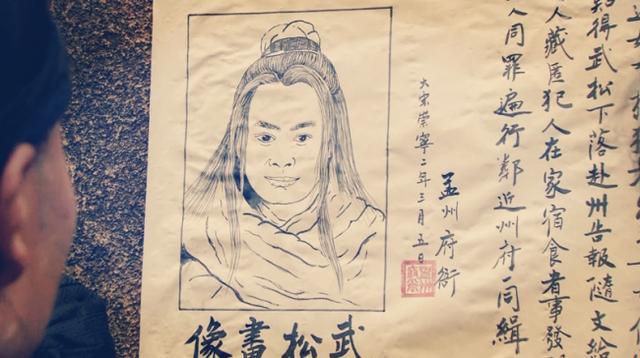 知得武松下落赴州告報隨文給
人藏匿犯人在家宿食者事發
人同罪遍行鄰近州府同緝
孟州府衙
大宋崇寧二年三月五日
武松畫像